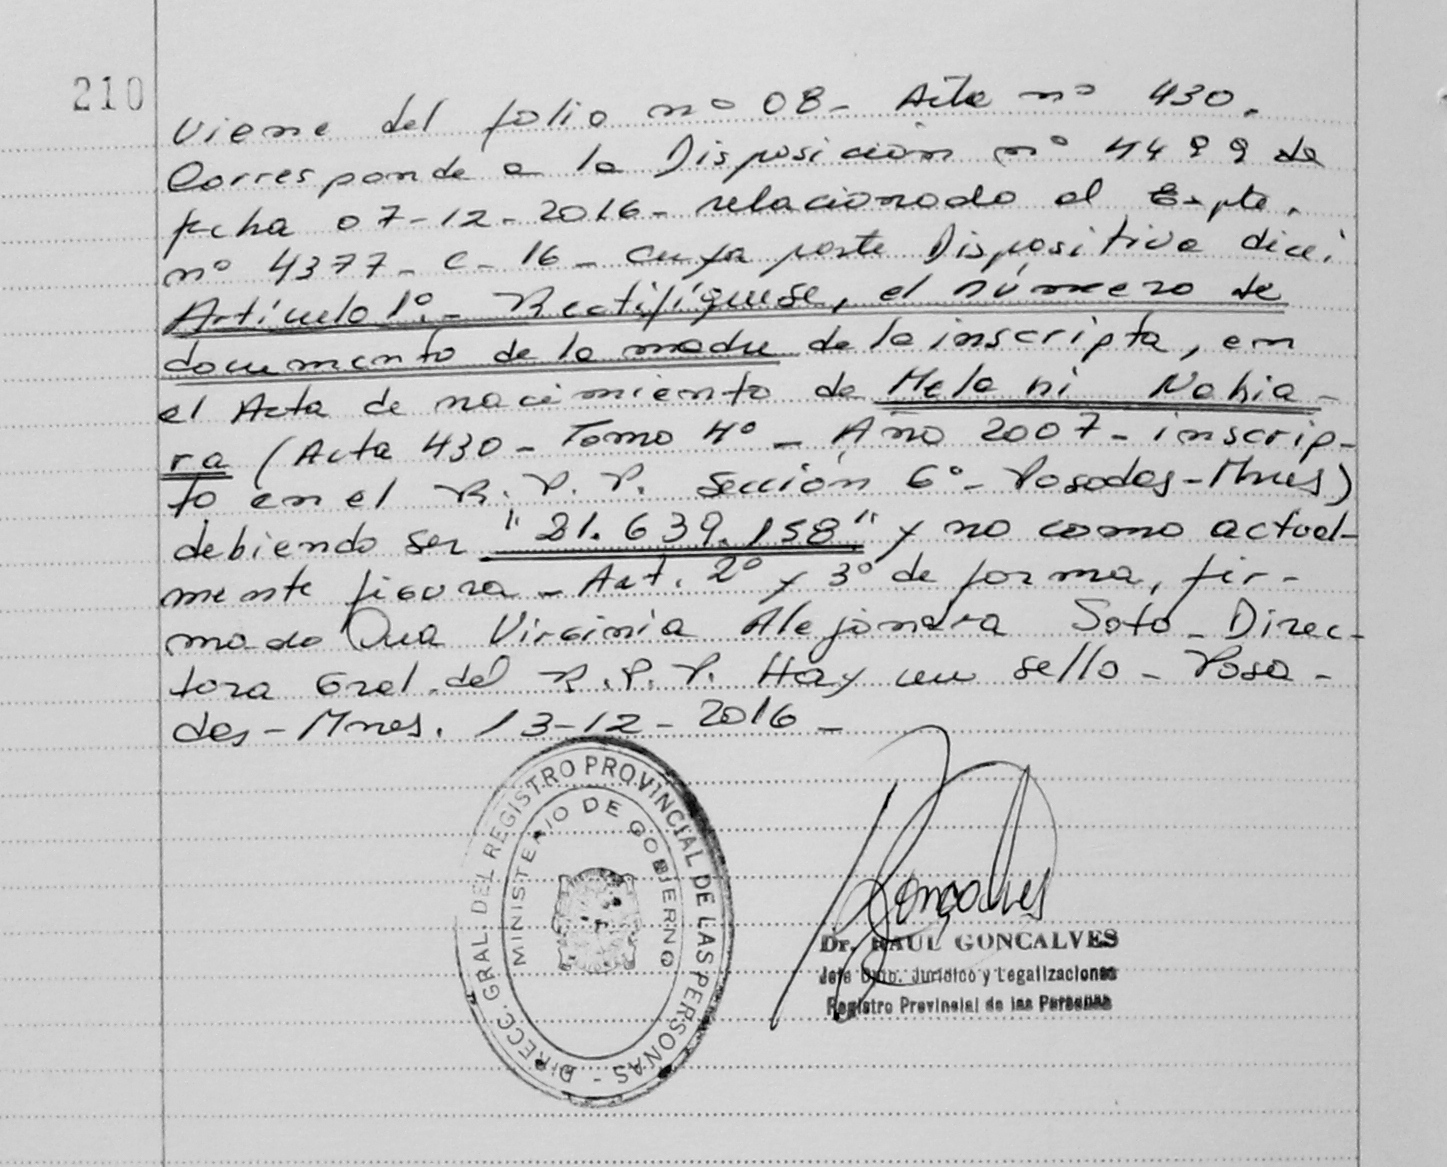 210
Viene del folio nº 08 - Acta nº 430.
Corresponde a la Disposición nº 4499 de
fecha 07-12-2016 - relacionado al Expte.
nº 4377 - C - 16 - cuya parte Dispositiva dice:
Artículo 1º.- Rectifíquese, el número de
documento de la madre de la inscripta, en
el Acta de nacimiento de Melani Nahia-
ra (Acta 430 - Tomo 4º - Año 2007 - inscrip-
to en el R.P.P. Sección 6º - Posadas - Mnes)
debiendo ser "21.639.158" y no como actual-
mente figura - Art. 2º y 3º de forma, fir-
mado Dra Virginia Alejandra Soto - Direc-
tora Gral. del R.P.P. Hay un sello - Posa-
das - Mnes. 13-12-2016 -
DIRECC. GRAL. DEL REGISTRO PROVINCIAL DE LAS PERSONAS -
MINISTERIO DE GOBIERNO
Goncalves
Dr. RAUL GONCALVES
Jefe Jurídico y Legalizaciones
Registro Provincial de las Personas